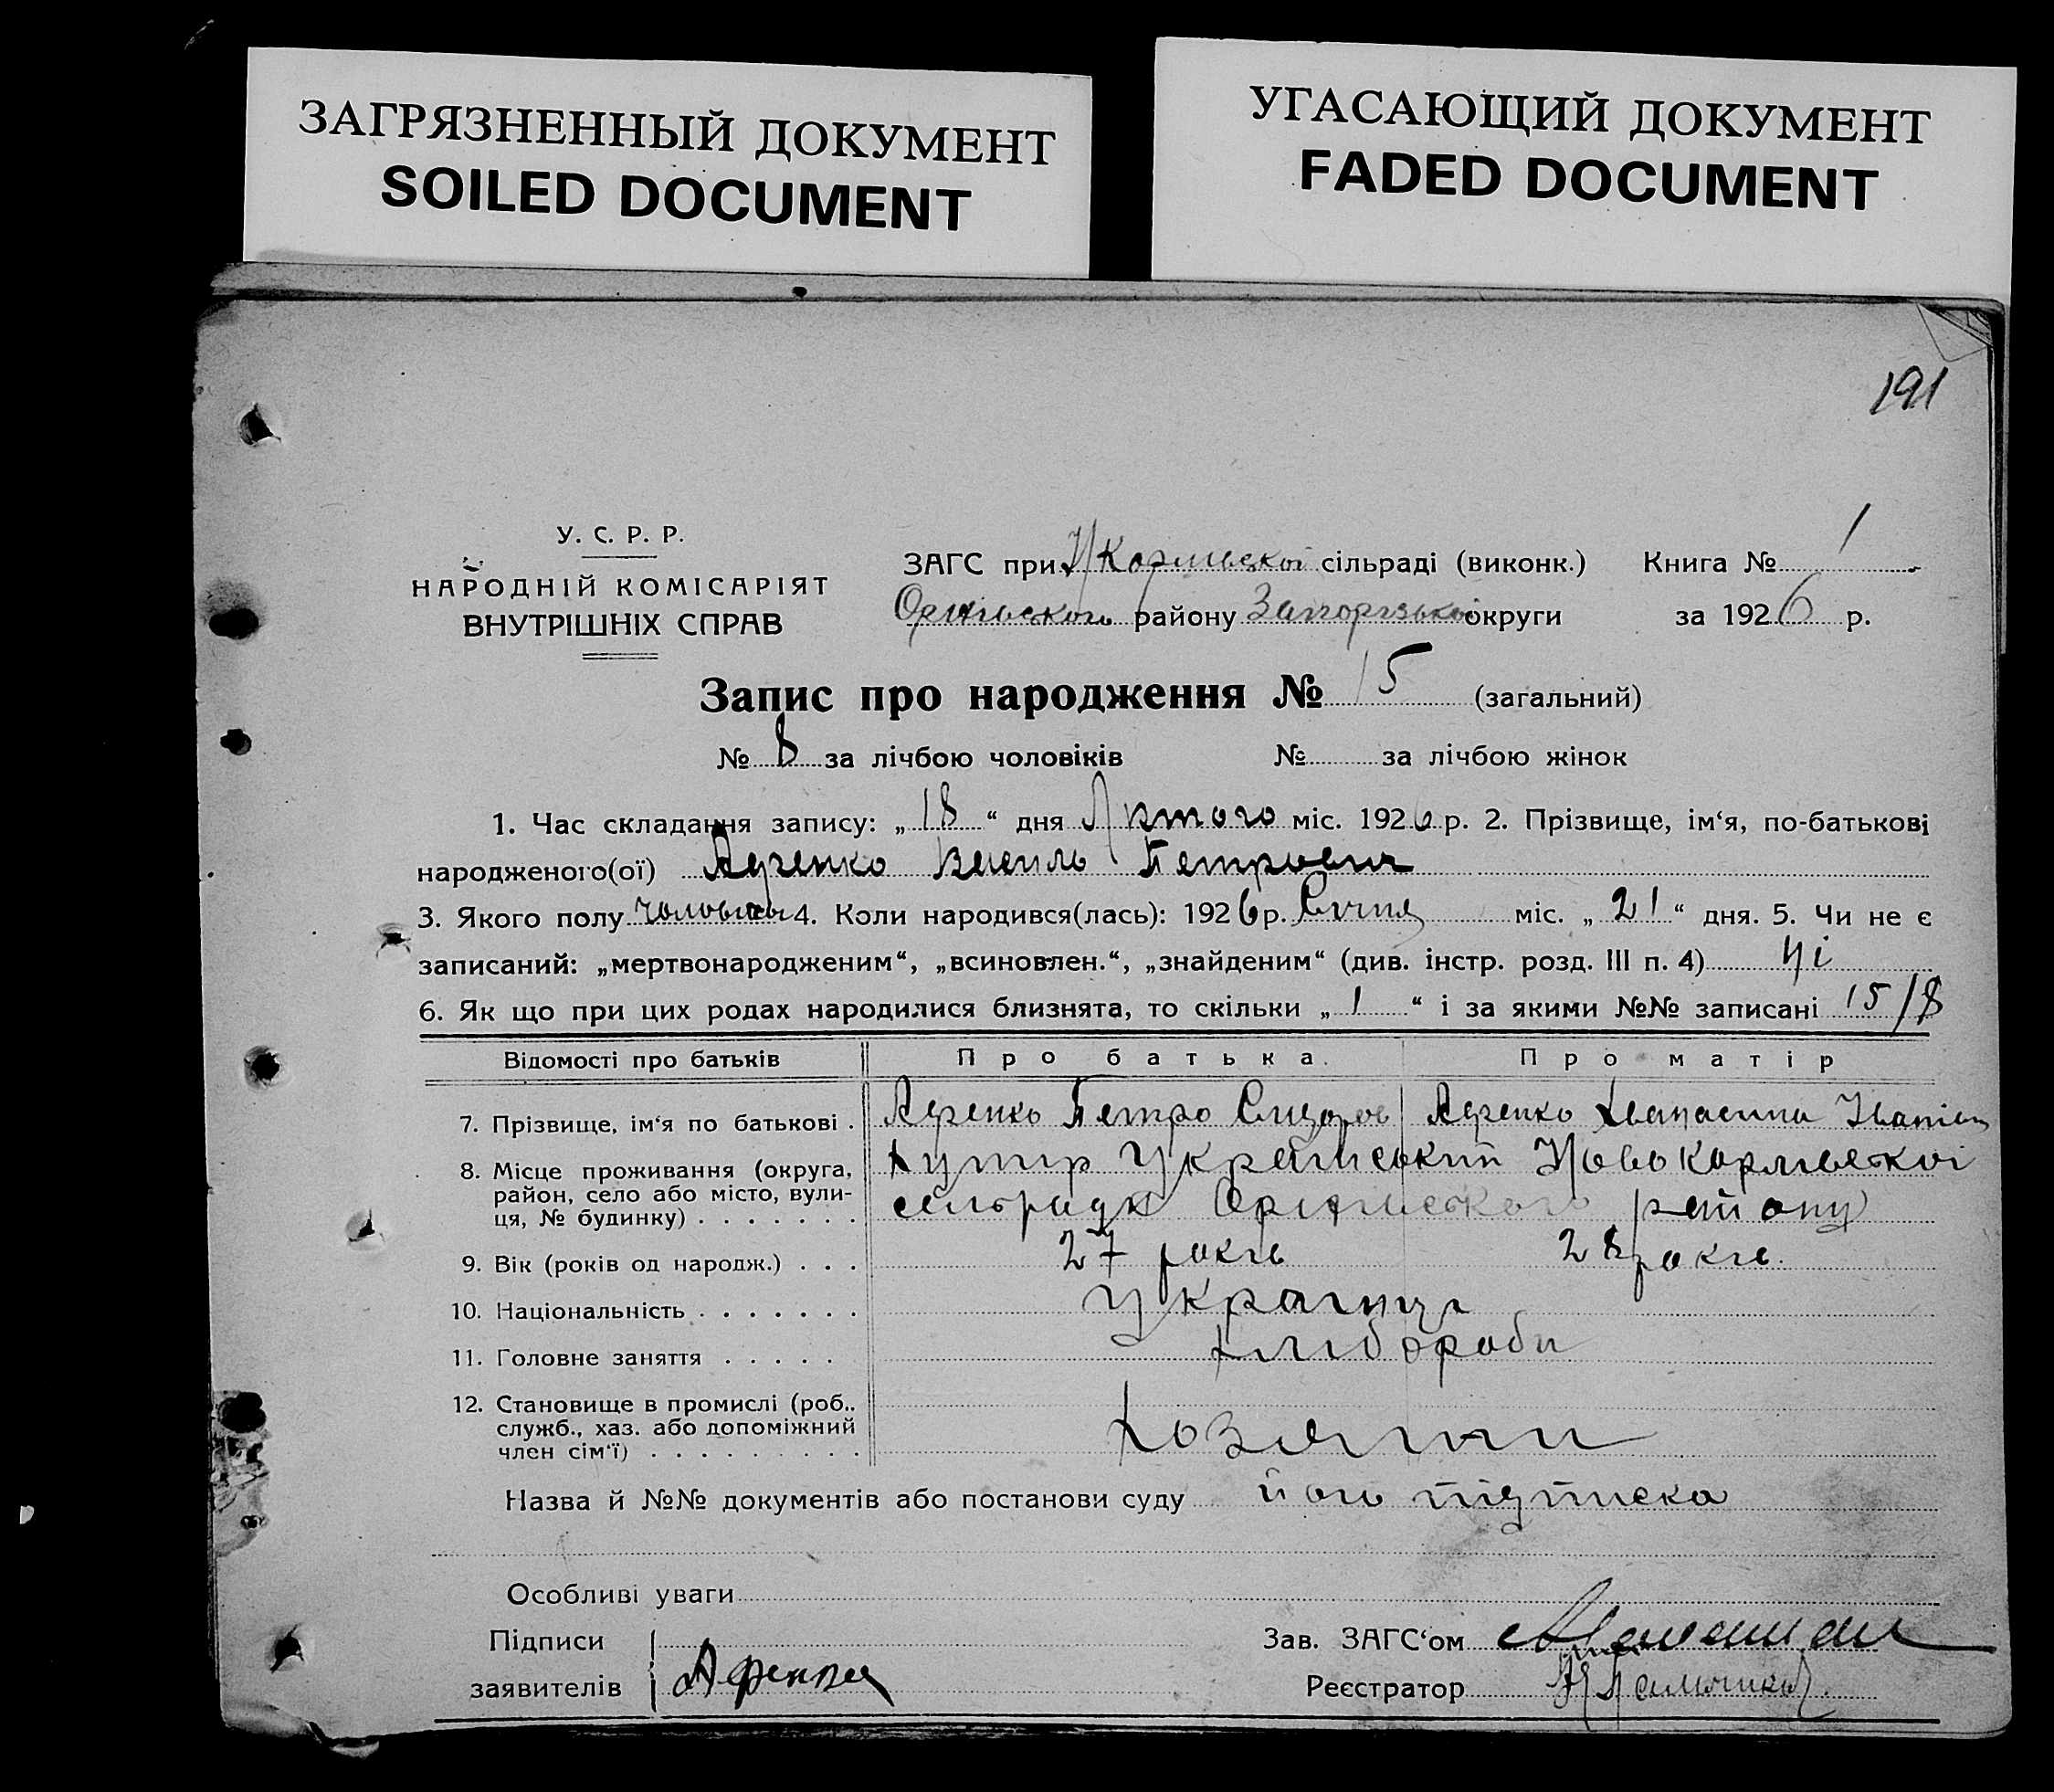 ЗАГРЯЗНЕННЫЙ ДОКУМЕНТ
SOILED DOCUMENT
УГАСАЮЩИЙ ДОКУМЕНТ
FADED DOCUMENT
191
У. С. Р. Р.
НАРОДНІЙ КОМІСАРІЯТ
ВНУТРІШНІХ СПРАВ
ЗАГС при Н Карлівської сільраді (виконк.) Книга № 1
району Запорізької округи за 1926 р.
Запис про народження № 15 (загальний)
№ 8 за лічбою чоловіків № за лічбою жінок
1. Час складання запису: „ 18 “ дня Лютого міс. 1926 р. 2. Прізвище, ім‘я, по-батькові
народженого(ої) Василь Петрович
3. Якого полу 4. Коли народився(лась): 1926 р. Січня міс. „ 21 “ дня. 5. Чи не є
записаний: „мертвонародженим“, „всиновлен.“, „знайденим“ (див. інстр. розд. III п. 4) ні
6. Як що при цих родах народилися близнята, то скільки „ 1 “ і за якими №№ записані 15/8
Відомості про батьків Про батька. Про матір
7. Прізвище, ім‘я по батькові . Петро Сидоров
8. Місце проживання (округа, район, село або місто, вулиця, № будинку) . . . . . . . Хутір Український Ново Карлівської
сільради району
9. Вік (років од народж.) . . . 27 років 28 років.
10. Національність . . . . . . . Українці
11. Головне заняття . . . . . Хлібороби
12. Становище в промислі (роб., служб., хаз. або допоміжний член сім‘ї) . . . . . . . . . Хозяїни
Назва й №№ документів або постанови суду його підписка
Особливі уваги
Підписи
заявителів
Зав. ЗАГС‘ом
Реєстратор